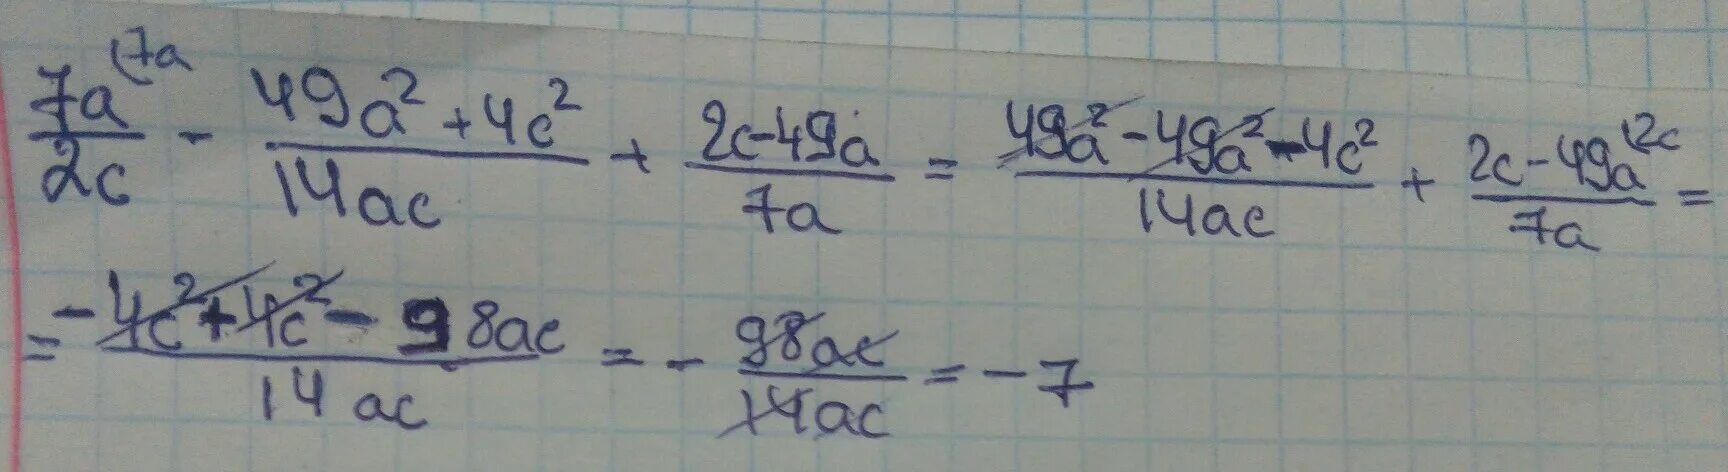 7a(7a/2c - 49a²+4c²/14ac + 2c-49a/7a = 49a²-49a²-4c²/14ac + 2c-49a(2c/7a =
= -4c²+4c²-98ac/14ac = - 98ac/14ac = -7